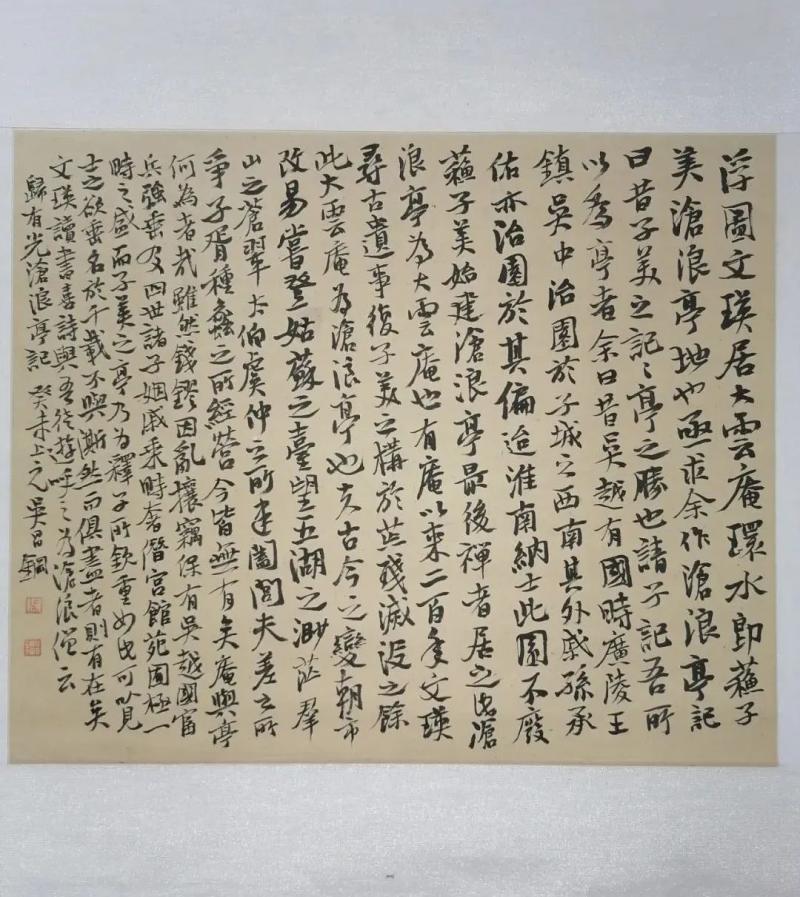 浮圖文瑛居大雲庵環水即蘇子
美滄浪亭地也亟求余作滄浪亭記
曰昔子美之記記亭之勝也請子記吾所
以為亭者余曰昔吳越有國時廣陵王
鎮吳中治園於子城之西南其外戚孫承
佑亦治園於其偏迨淮南納土此園不廢
蘇子美始建滄浪亭最後禪者居之此滄
浪亭為大雲庵也有庵以來二百年文瑛
尋古遺事復子美之構於荒殘滅沒之餘
此大雲庵為滄浪亭也夫古今之變朝市
改易嘗登姑蘇之臺望五湖之渺茫羣
山之蒼翠太伯虞仲之所建闔閭夫差之所
爭子胥種蠡之所經營今皆無有矣庵與亭
何為者哉雖然錢鏐因亂攘竊保有吳越國富
兵強垂及四世諸子姻戚乘時奢僭宮館苑囿極一
時之盛而子美之亭乃為釋子所欽重如此可以見
士之欲垂名於千載不與澌然而俱盡者則有在矣
文瑛讀書喜詩與吾徒遊呼之為滄浪僧云
歸有光滄浪亭記 癸未上元 吳昌鋼